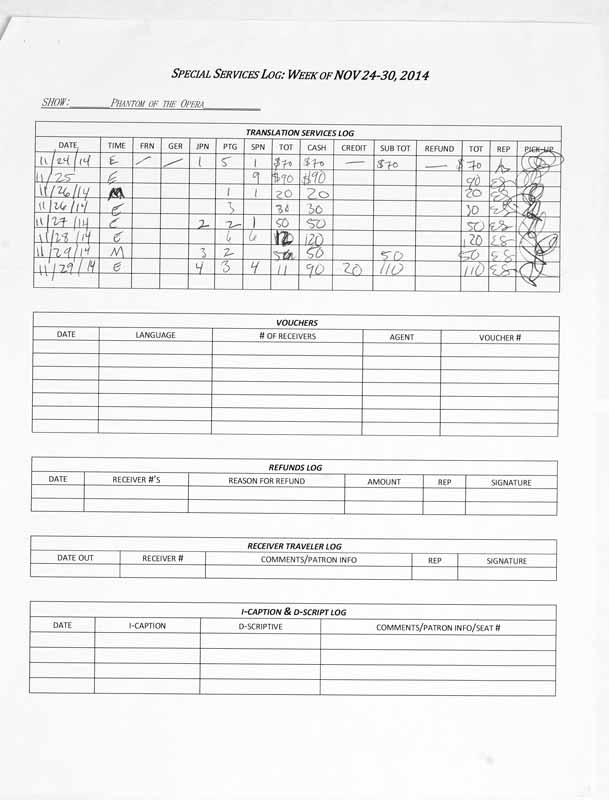 SPECIAL SERVICES LOG: WEEK OF NOV 24-30, 2014
SHOW: PHANTOM OF THE OPERA
TRANSLATION SERVICES LOG
DATE TIME FRN GER JPN PTG SPN TOT CASH CREDIT SUB TOT REFUND TOT REP PICK-UP
11/24/14 E — — 1 5 1 $70 $70 — $70 — $70
11/25 E 9 $90 $90 90 ES
11/26/14 M 1 1 20 20 20 ES
11/26/14 E 3 30 30 30 ES
11/27/14 E 2 2 1 50 50 50 ES
11/28/14 E 6 6 12 120 120 ES
11/29/14 M 3 2 50 50 50 50 ES
11/29/14 E 4 3 4 11 90 20 110 110 ES
VOUCHERS
DATE LANGUAGE # OF RECEIVERS AGENT VOUCHER #
REFUNDS LOG
DATE RECEIVER #'S REASON FOR REFUND AMOUNT REP SIGNATURE
RECEIVER TRAVELER LOG
DATE OUT RECEIVER # COMMENTS/PATRON INFO REP SIGNATURE
I-CAPTION & D-SCRIPT LOG
DATE I-CAPTION D-SCRIPTIVE COMMENTS/PATRON INFO/SEAT #